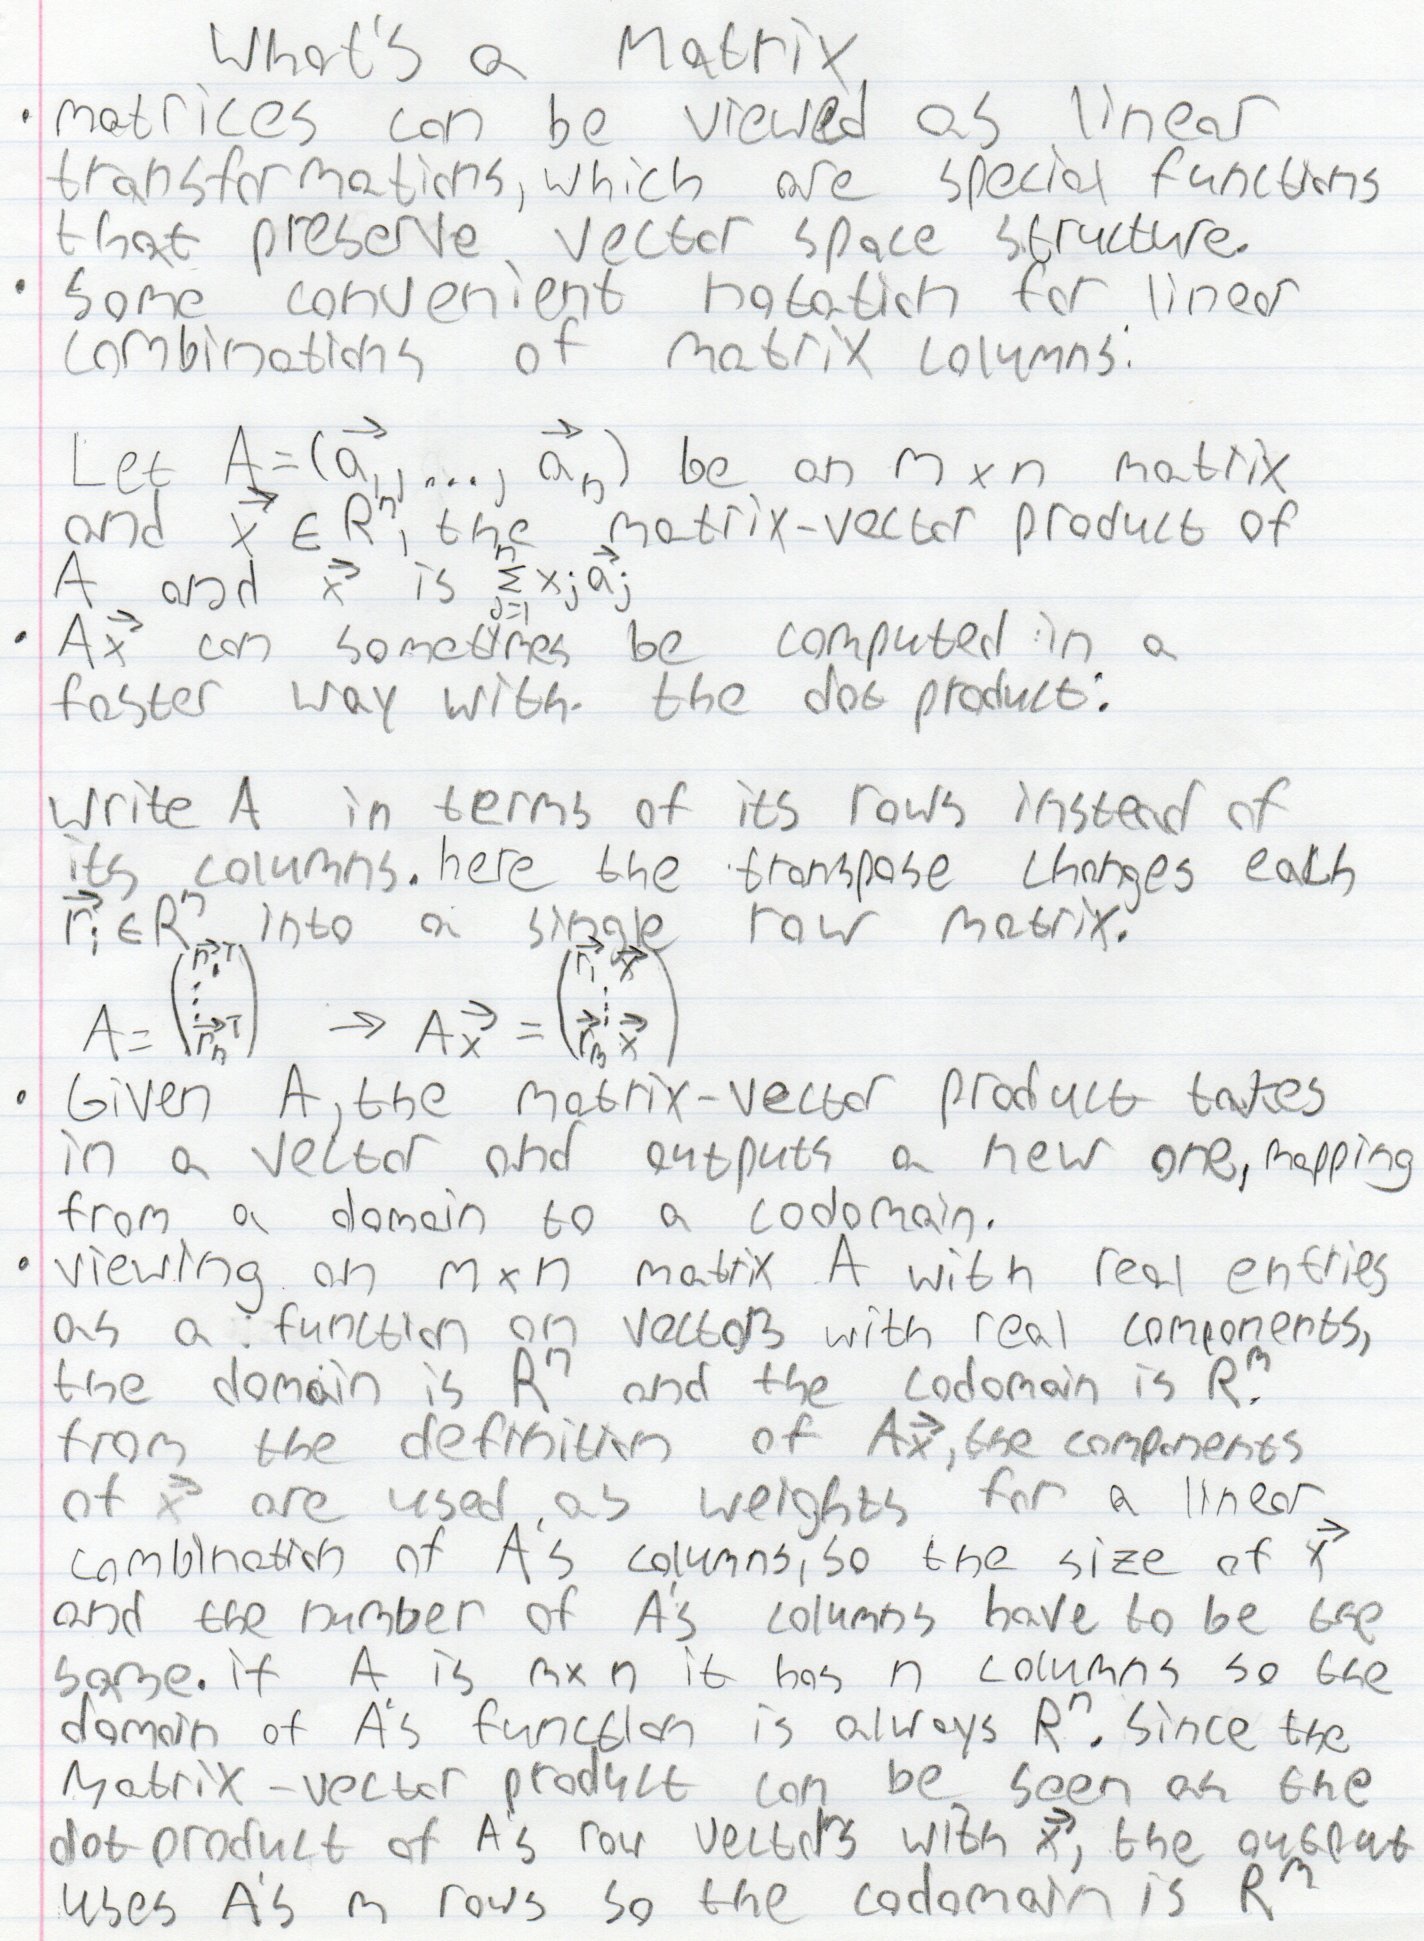 What's a Matrix
• matrices can be viewed as linear
transformations, which are special functions
that preserve vector space structure.
• Some convenient notation for linear
combinations of matrix columns:
Let A=(a⃗₁,..., a⃗ₙ) be an m x n matrix
and x⃗ ∈ Rⁿ, the matrix-vector product of
A and x⃗ is ∑ⁿⱼ₌₁ xⱼa⃗ⱼ
• Ax⃗ can sometimes be computed in a
faster way with the dot product:
Write A in terms of its rows instead of
its columns. here the transpose changes each
r⃗ᵢ ∈ Rⁿ into a single row matrix.
A = (r⃗₁ᵀ ⋮ r⃗ₙᵀ) → Ax⃗ = (r⃗₁ x⃗ ⋮ r⃗ₘ x⃗)
• Given A, the matrix-vector product takes
in a vector and outputs a new one, mapping
from a domain to a codomain.
• viewing an m x n matrix A with real entries
as a function on vectors with real components,
the domain is Rⁿ and the codomain is Rᵐ.
from the definition of Ax⃗, the components
of x⃗ are used as weights for a linear
combination of A's columns, so the size of x⃗
and the number of A's columns have to be the
same. if A is m x n it has n columns so the
domain of A's function is always Rⁿ. Since the
Matrix-vector product can be seen as the
dot product of A's row vectors with x⃗, the output
uses A's m rows so the codomain is Rᵐ